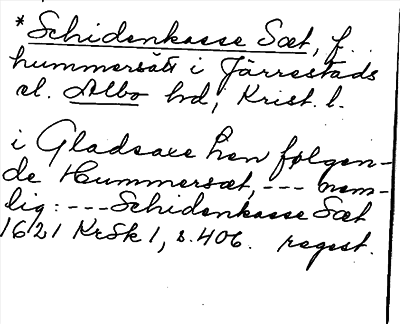 *Schidenkasse Sæt, f.
hummersätt i Järrestads
el. Albo hd, Krist. l.
i Gladsaxe hen følgen-
de Hummersæt, --- nem-
lig: --- Schidenkasse Sæt
1621 KrSk 1, s. 406. regest.